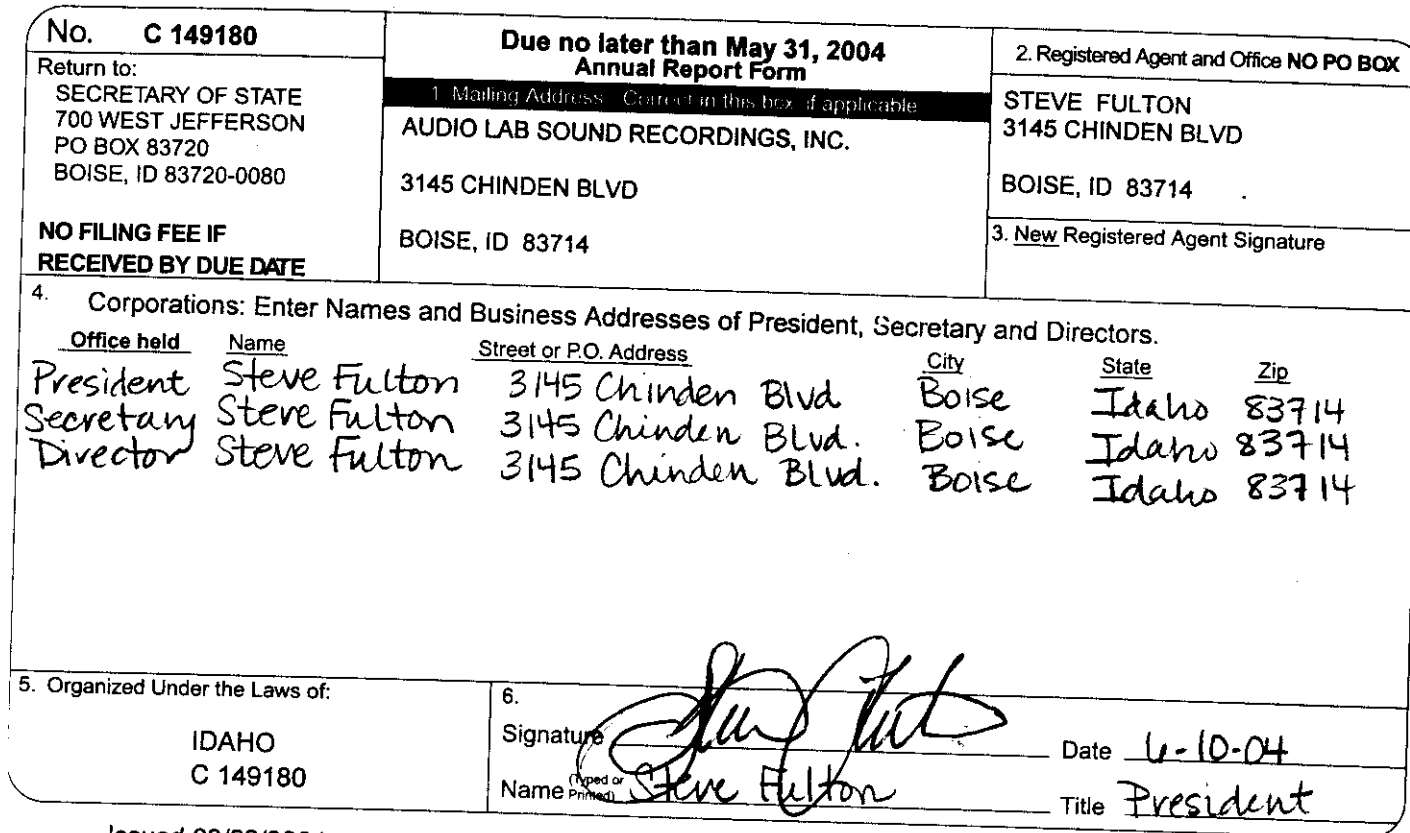 No. C 149180
Return to:
SECRETARY OF STATE
700 WEST JEFFERSON
PO BOX 83720
BOISE, ID 83720-0080
NO FILING FEE IF
RECEIVED BY DUE DATE
Due no later than May 31, 2004
Annual Report Form
1. Mailing Address: Correct in this box if applicable
AUDIO LAB SOUND RECORDINGS, INC.
3145 CHINDEN BLVD
BOISE, ID 83714
2. Registered Agent and Office NO PO BOX
STEVE FULTON
3145 CHINDEN BLVD
BOISE, ID 83714
3. New Registered Agent Signature
4. Corporations: Enter Names and Business Addresses of President, Secretary and Directors.
Office held Name Street or P.O. Address City State Zip
President Steve Fulton 3145 Chinden Blvd Boise Idaho 83714
Secretary Steve Fulton 3145 Chinden Blvd. Boise Idaho 83714
Director Steve Fulton 3145 Chinden Blvd. Boise Idaho 83714
5. Organized Under the Laws of:
IDAHO
C 149180
6.
Signature
Date 6-10-04
Name (Typed or Printed) Steve Fulton
Title President
Issued